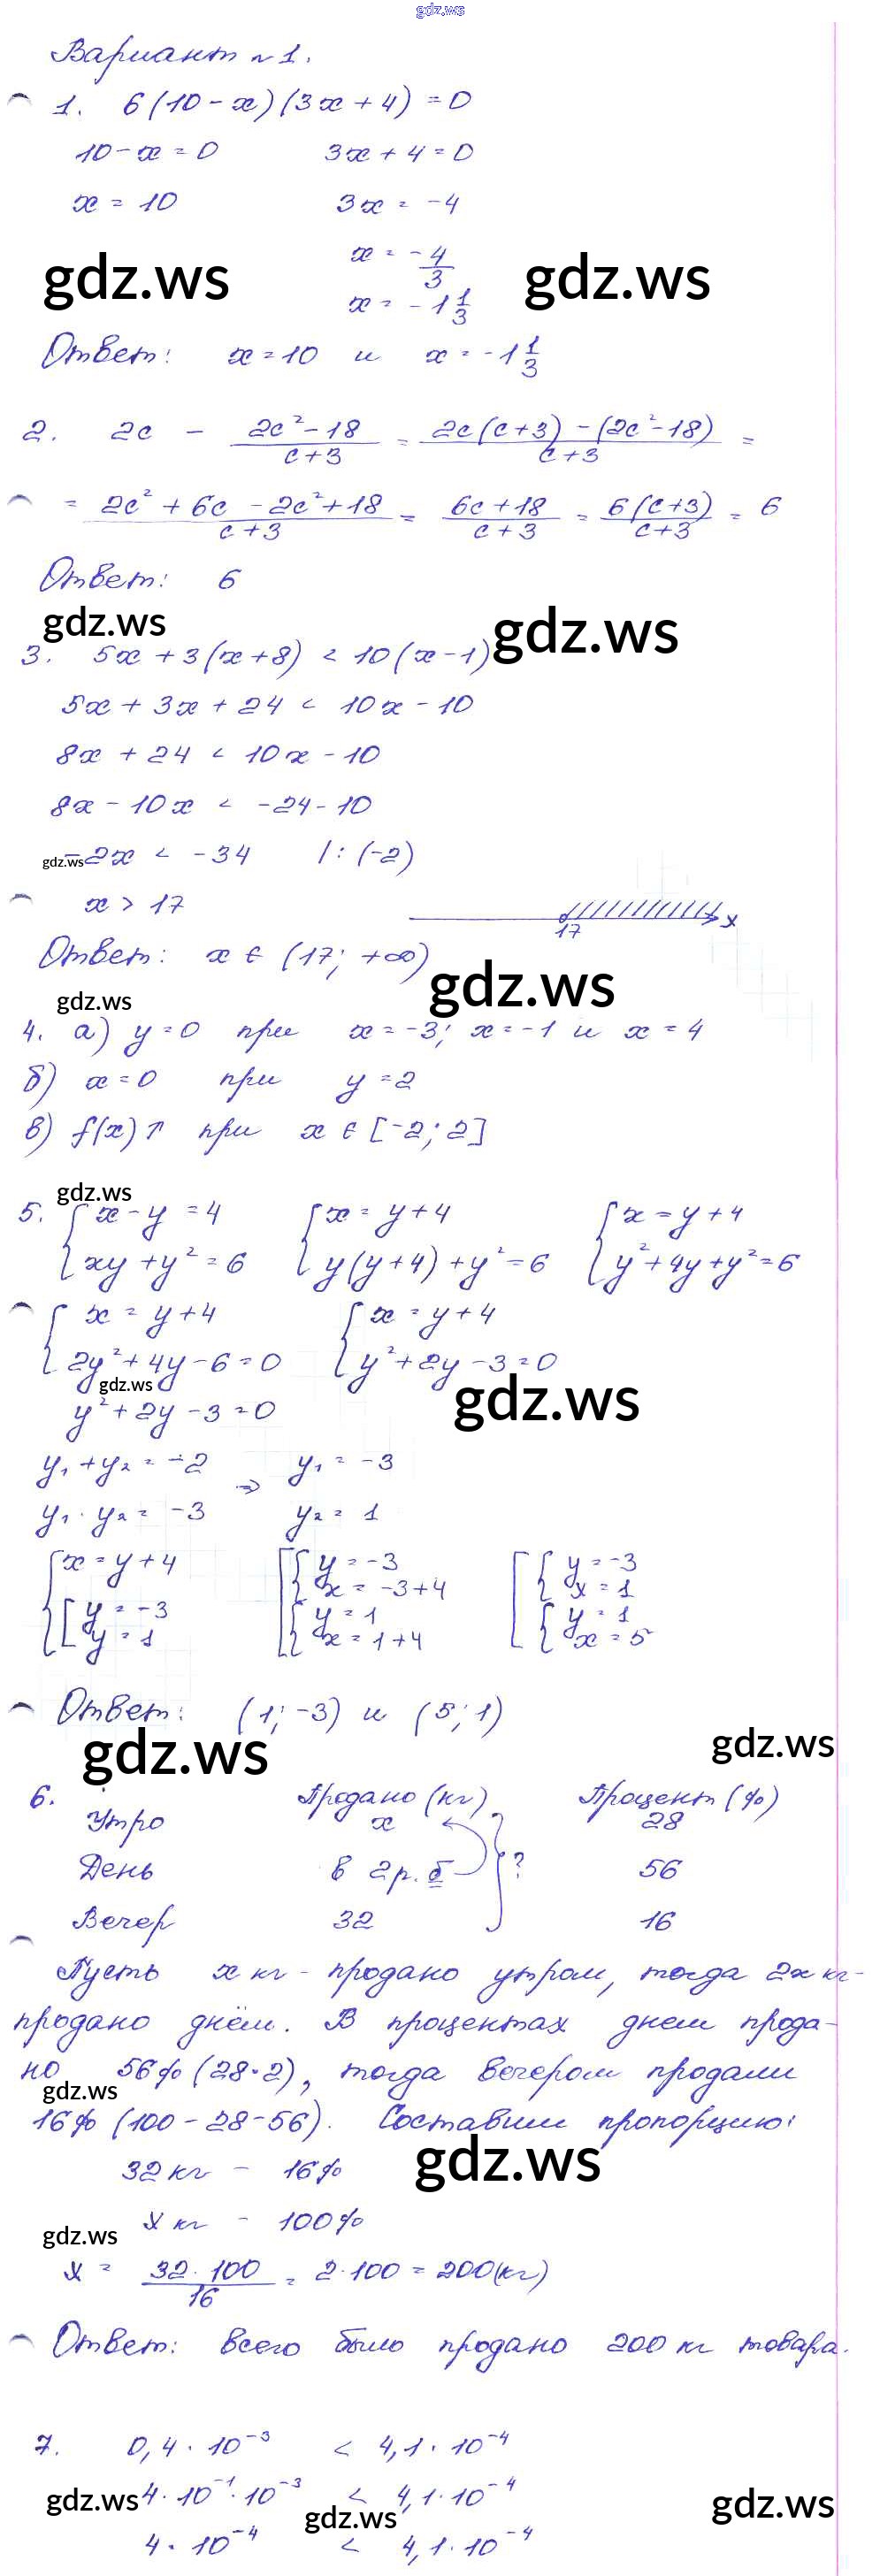 gdz.ws
Вариант №1.
1. 6(10-x)(3x+4)=0
10-x=0 3x+4=0
x=10 3x=-4
x=-4/3
gdz.ws gdz.ws
x=-1 1/3
Ответ: x=10 и x=-1 1/3
2. 2c - (2c²-18)/(c+3) = (2c(c+3)-(2c²-18))/(c+3) =
= (2c²+6c-2c²+18)/(c+3) = (6c+18)/(c+3) = 6(c+3)/(c+3) = 6
Ответ: 6
gdz.ws gdz.ws
3. 5x+3(x+8) < 10(x-1)
5x+3x+24 < 10x-10
8x+24 < 10x-10
8x-10x < -24-10
gdz.ws -2x < -34 |:(-2)
x > 17
17 x
Ответ: x ∈ (17; +∞)
gdz.ws gdz.ws
4. а) y=0 при x=-3; x=-1 и x=4
б) x=0 при y=2
в) f(x)↑ при x ∈ [-2; 2]
gdz.ws
5. { x-y=4 { x=y+4 { x=y+4
{ xy+y²=6 { y(y+4)+y²=6 { y²+4y+y²=6
{ x=y+4 { x=y+4
{ 2y²+4y-6=0 { y²+2y-3=0
gdz.ws gdz.ws
y²+2y-3=0
y₁+y₂=-2 ⇒ y₁=-3
y₁·y₂=-3 y₂=1
{ x=y+4 [ { y=-3 [ { y=-3
{ x=-3+4 { x=1
{ [ y=-3 { y=1 { y=1
[ y=1 { x=1+4 { x=5
Ответ: (1; -3) и (5; 1)
gdz.ws gdz.ws
6. Продано (кг) Процент (%)
Утро x 28
День в 2 р. б ? 56
Вечер 32 16
Пусть x кг - продано утром, тогда 2x кг -
продано днём. В процентах днем прода-
но 56% (28·2), тогда вечером продали
gdz.ws
16% (100-28-56). Составим пропорцию:
32 кг - 16% gdz.ws
x кг - 100%
gdz.ws
x = (32·100)/16 = 2·100 = 200 (кг)
Ответ: всего было продано 200 кг товара.
7. 0,4·10⁻³ < 4,1·10⁻⁴
4·10⁻¹·10⁻³ < 4,1·10⁻⁴
gdz.ws gdz.ws gdz.ws
4·10⁻⁴ < 4,1·10⁻⁴